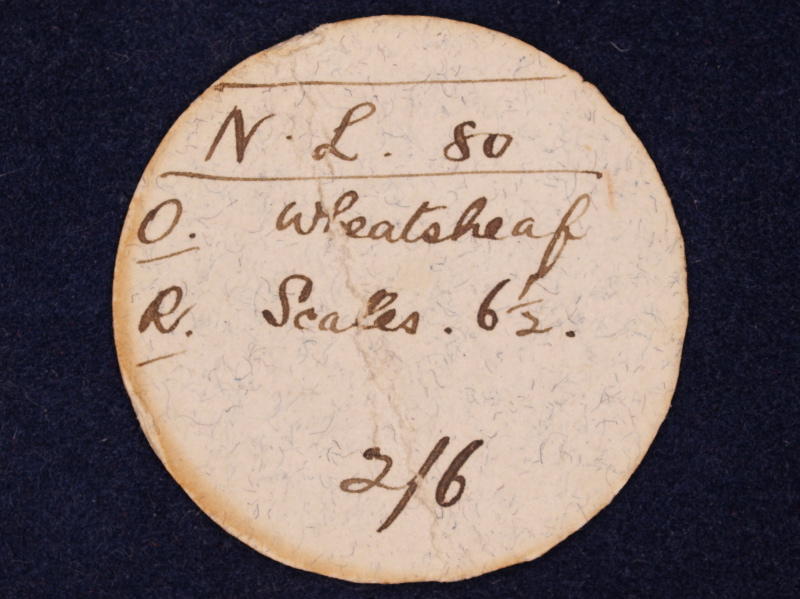 N. L. 80
O. Wheatsheaf
R. Scales. 6½.
2/6